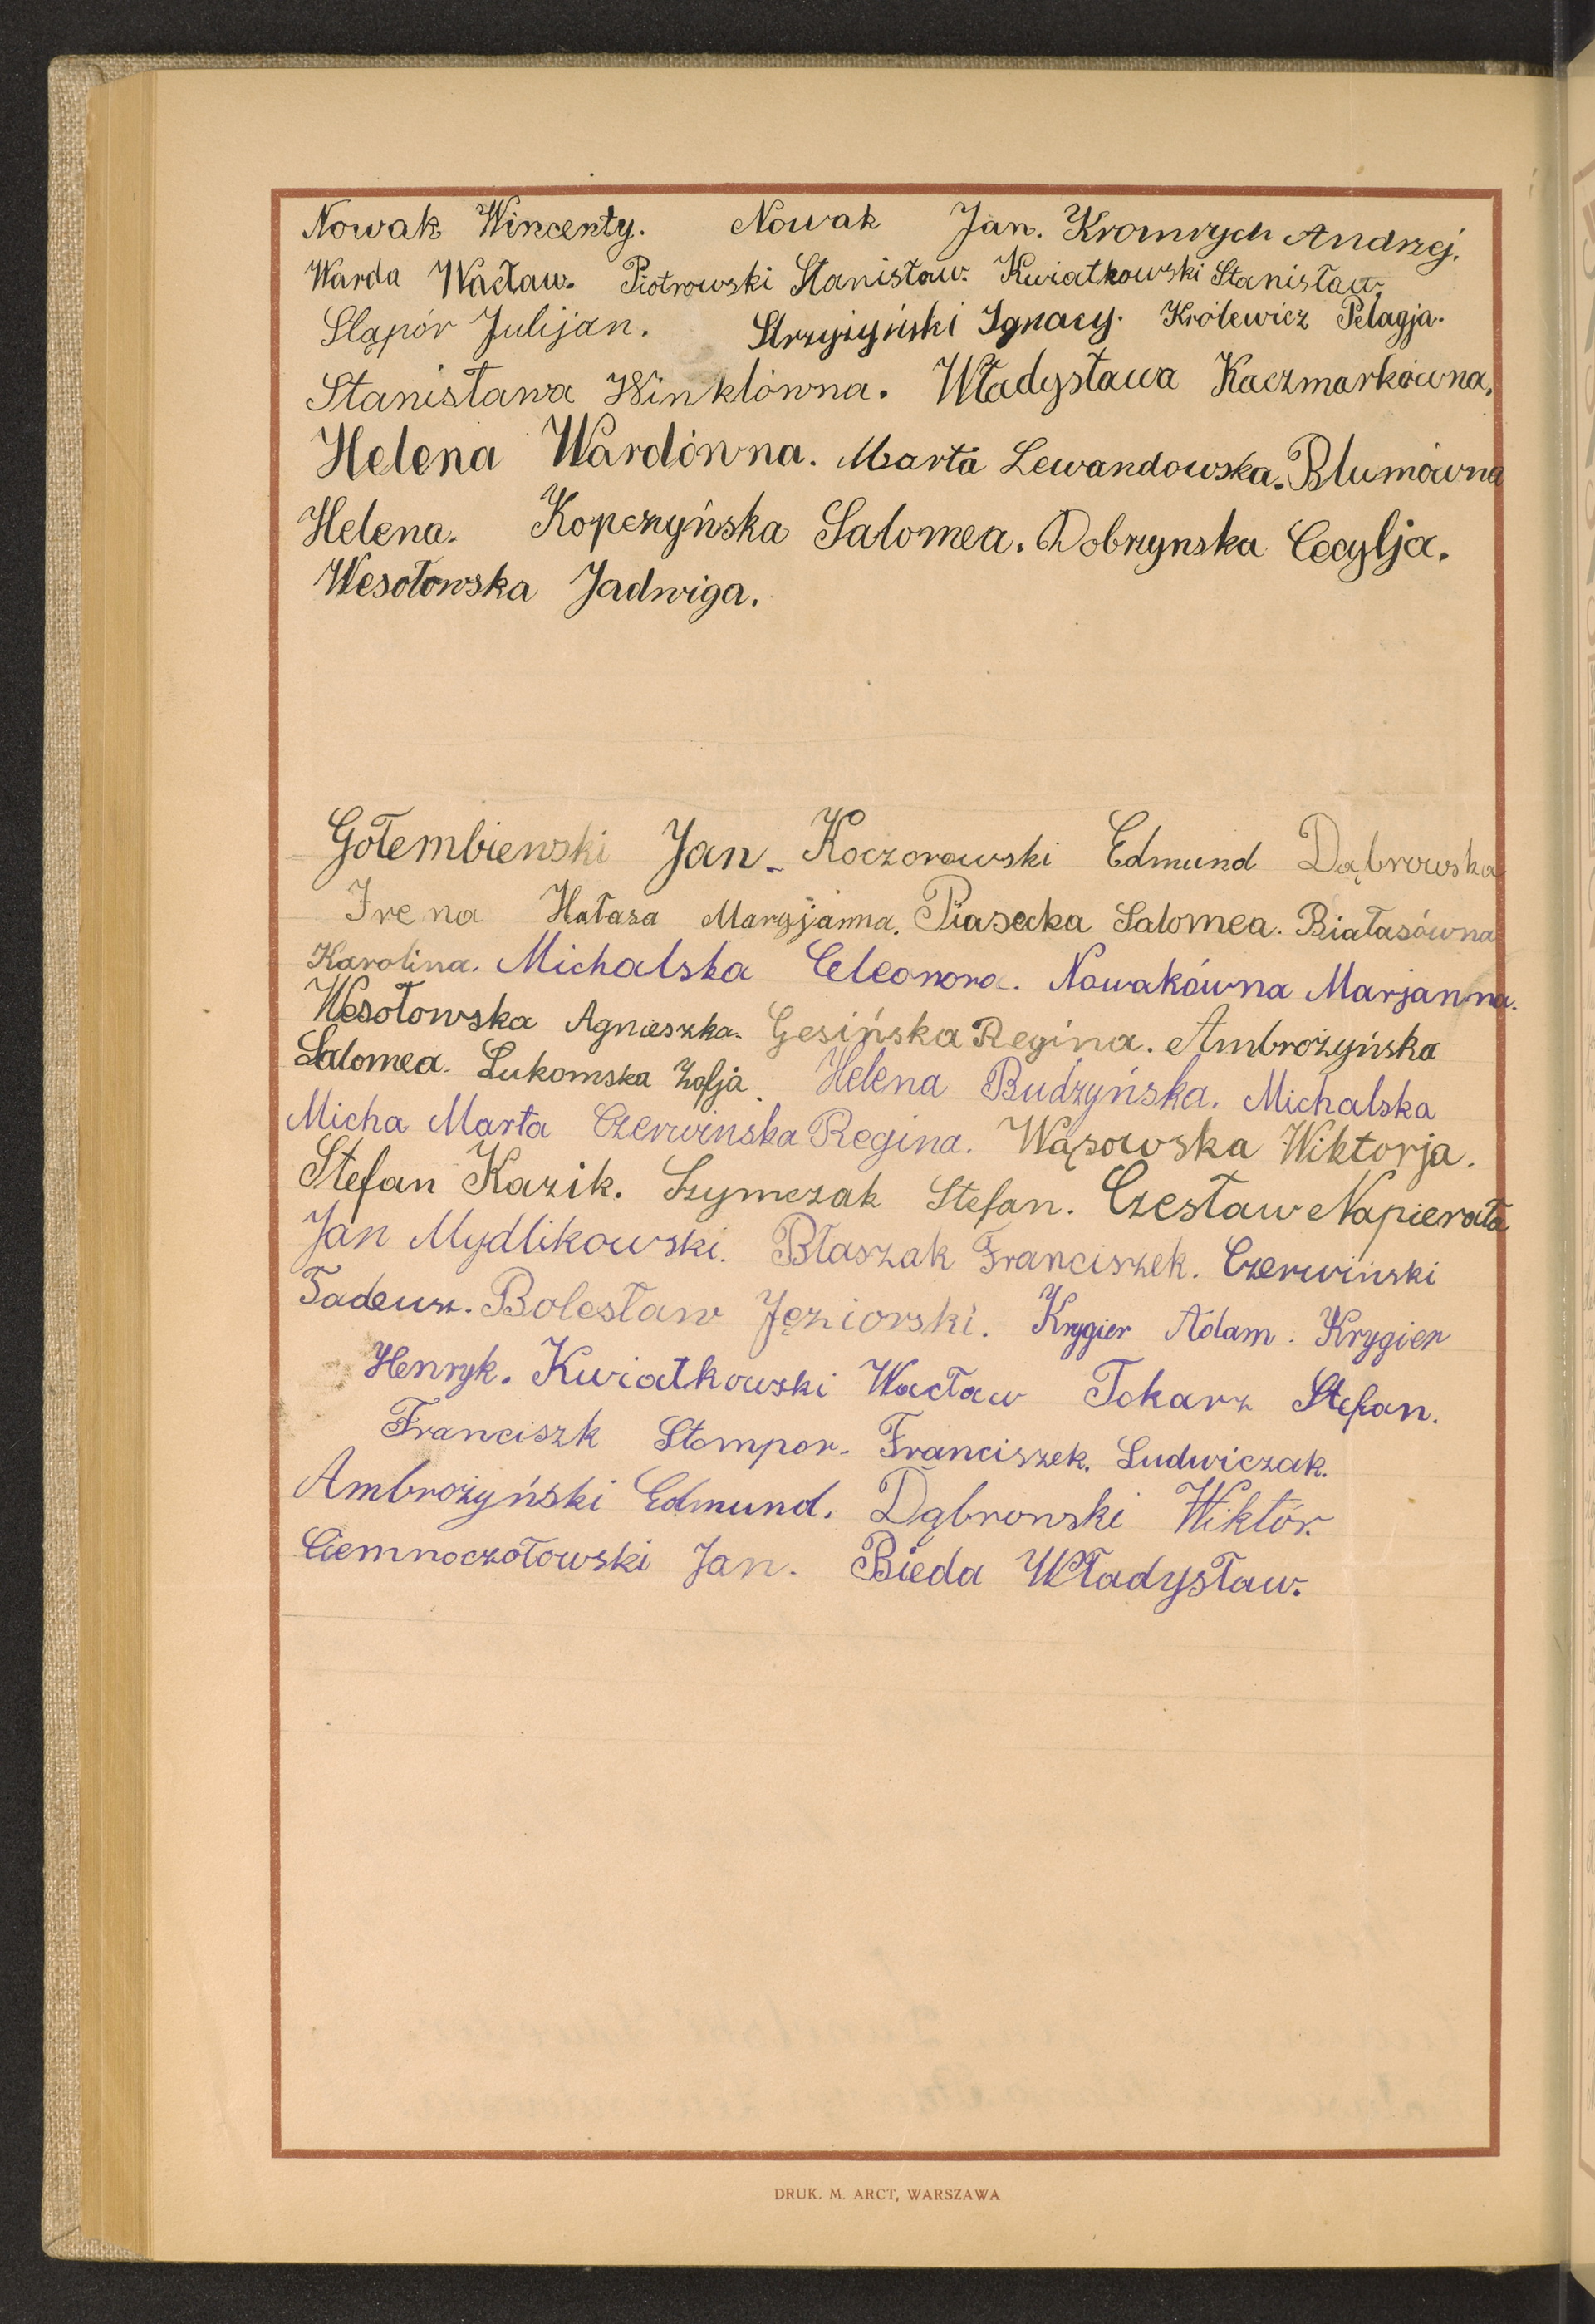 Nowak Wincenty. Nowak Jan. Kromrych Andrzej.
Warda Wacław. Piotrowski Stanisław. Kwiatkowski Stanisław.
Słąpór Julijan. Strzyżyński Ignacy. Królewicz Pelagja.
Stanisława Winklówna. Władysława Kaczmarkówna.
Helena Wardówna. Marta Lewandowska. Blumówna
Helena. Kopczyńska Salomea. Dobrzynska Cecylja.
Wesołowska Jadwiga.
Gołembiewski Jan. Koczorowski Edmund Dąbrowska
Irena Hałasa Maryjanna. Piasecka Salomea. Białasówna
Karolina. Michalska Eleonora. Nowakówna Marjanna.
Wesołowska Agnieszka. Gesińska Regina. Ambrożyńska
Salomea. Lukomska Zofja. Helena Budzyńska. Michalska
Micha Marta Czerwinska Regina. Wąsowska Wiktorja.
Stefan Kazik. Szymczak Stefan. Czesław Napierała
Jan Mydlikowski. Błaszak Franciszek. Czerwiński
Tadeusz. Bolesław Jęziorski. Krygier Adam. Krygier
Henryk. Kwiatkowski Wacław Tokarz Stefan.
Franciszk Stompor. Franciszek. Ludwiczak.
Ambrożyński Edmund. Dąbrowski Wiktór.
Ciemnoczołowski Jan. Bieda Władysław.
DRUK. M. ARCT, WARSZAWA